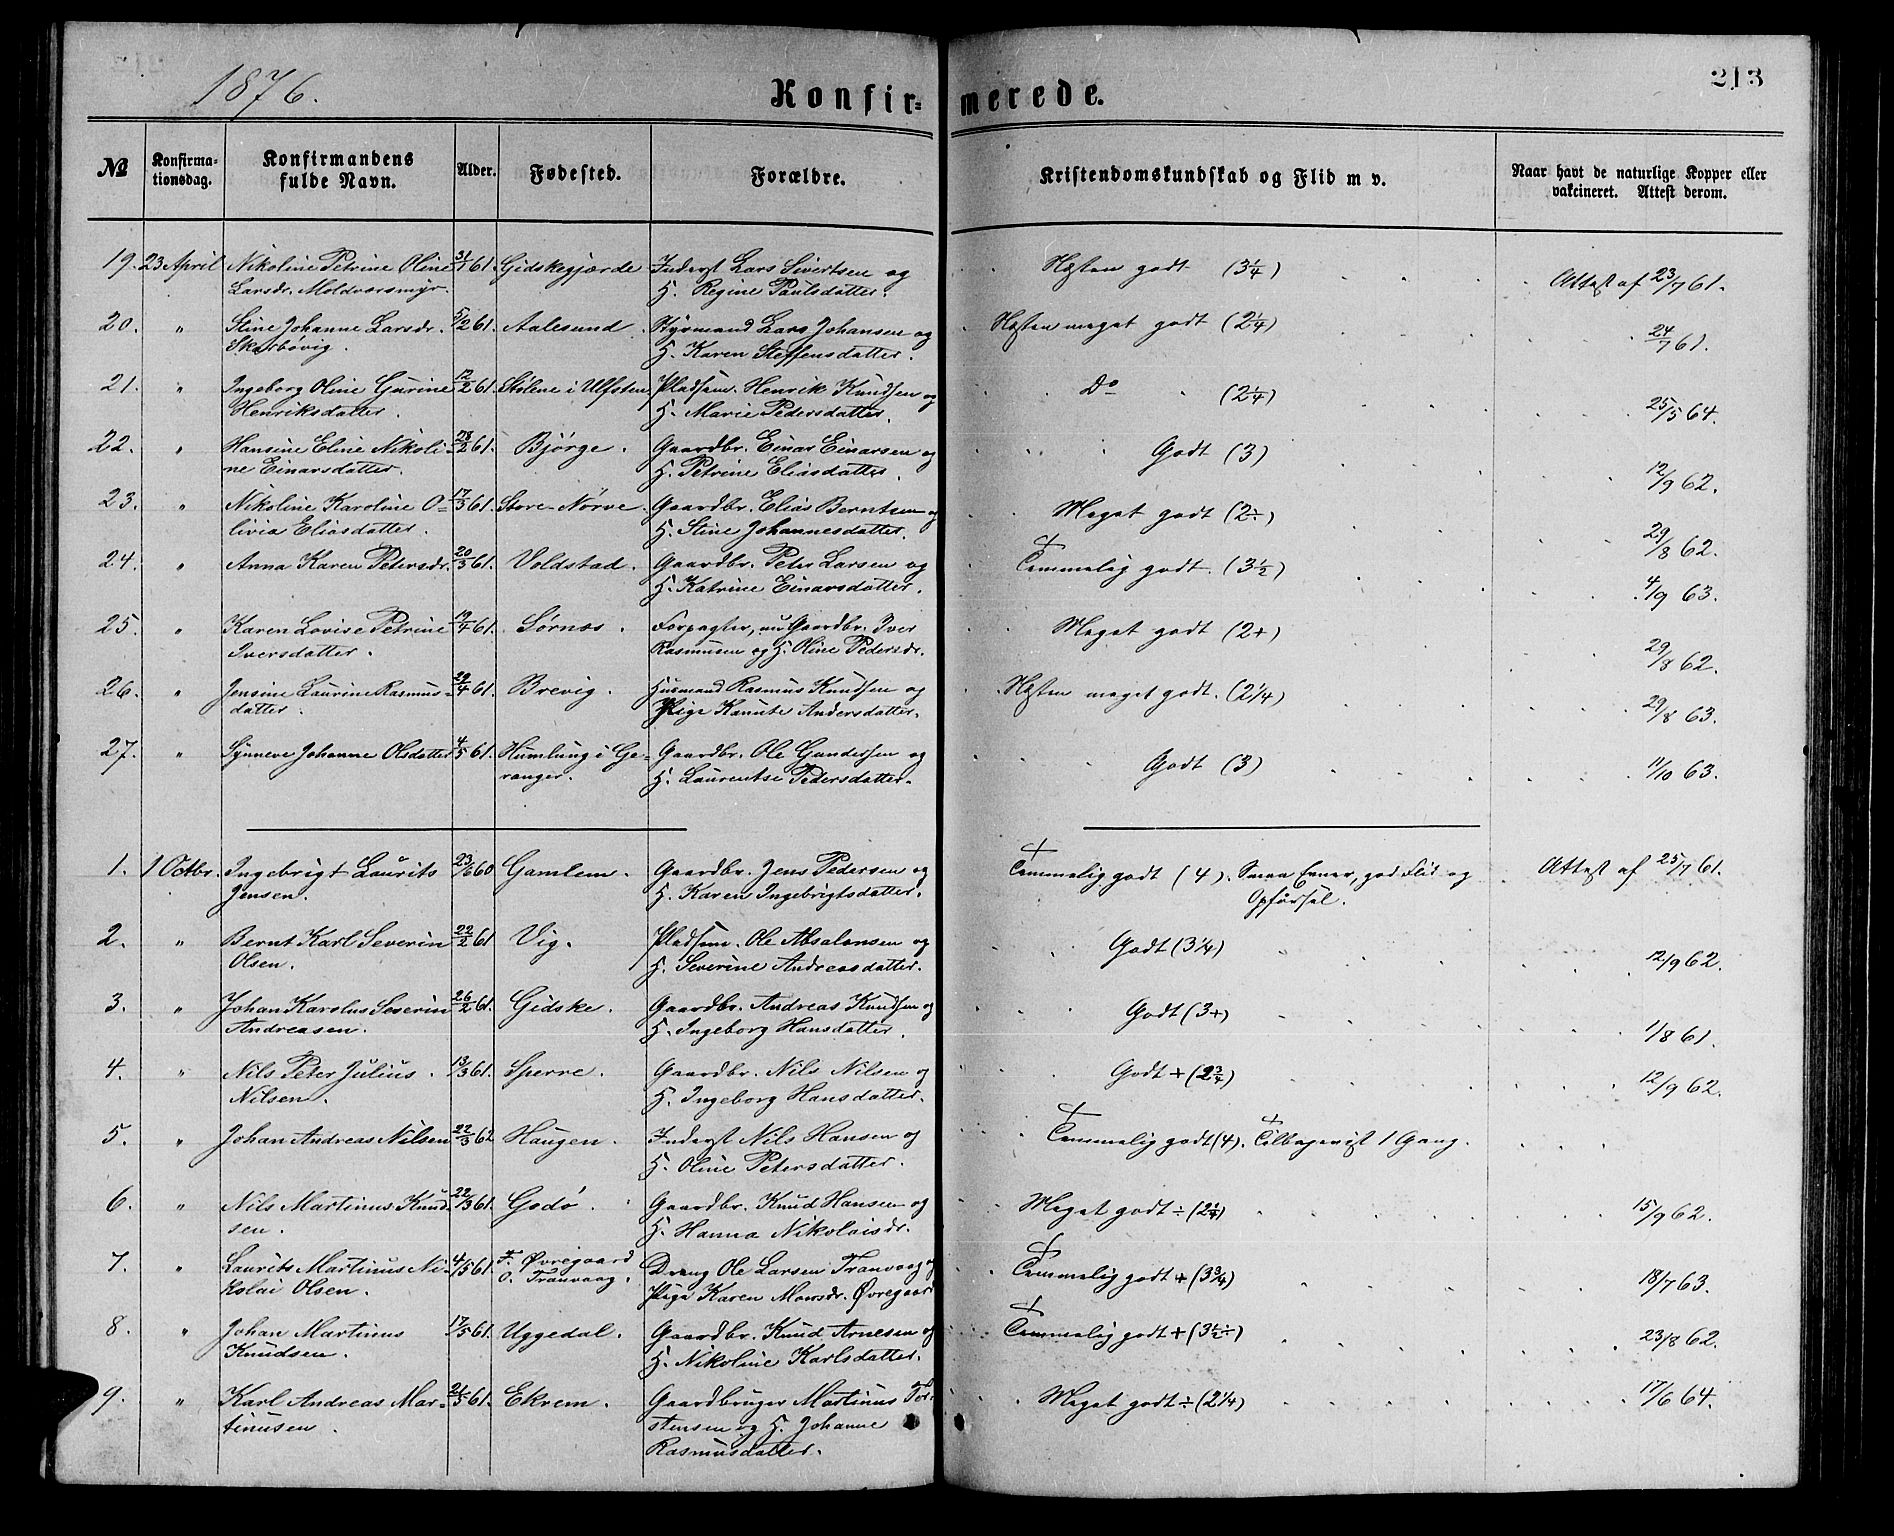 1876.
213
Konfir- merede.
№
Konfirma-
tionsdag.
Konfirmandens
fulde Navn.
Alder.
Fødested.
Forældre.
Kristendomskundskab og Flid m v.
Naar havt de naturlige Kopper eller
vakcineret. Attest derom.
19. 23 April Nikoline Petrine Oline 31/1 61. Gidskegjærde Inderst Lars Sivertsen og Næsten godt (3 1/4) Attest af 23/7 61.
Larsdr. Moldværsmyr. H. Regine Paulsdatter.
20. " Stine Johanne Larsdr. 5/2 61. Aalesund. Styrmand Lars Johansen og Næsten meget godt (2 1/4) 24/7 61.
Skarbøvig. H. Karen Steffensdatter.
21. " Ingeborg Oline Gurine 12/2 61. Stølene i Ulfsten Pladsm. Henrik Knudsen og Do (2 1/4) 25/5 64.
Henriksdatter. H. Marie Pedersdatter.
22. " Hansine Eline Nikoli- 28/2 61. Bjørge. Gaardbr. Einar Einarsen og Godt (3) 12/9 62.
ne Einarsdatter. H. Petrine Eliasdatter.
23. " Nikoline Karoline O- 17/3 61. Store-Nørve. Gaardbr. Elias Berntsen og Meget godt (2÷) 29/8 62.
livia Eliasdatter. H. Stine Johannesdatter.
24. " Anna Karen Petersdr. 20/3 61. Voldstad. Gaardbr. Peter Larsen og Temmelig godt. (3 1/2) 4/9 63.
H. Katrine Einarsdatter.
25. " Karen Lovise Petrine 19/4 61. Sørnæs. Forpagter, nu Gaardbr. Iver Meget godt (2+) 29/8 62.
Iversdatter. Rasmusen og H. Oline Pedersdr.
26. " Jensine Laurine Rasmus- 29/4 61. Brevig. Husmand Rasmus Knudsen og Næsten meget godt. (2 1/4) 29/8 63.
datter. Pige Kanute Andersdatter.
27. " Synneve Johanne Olsdatter 4/5 61. Humlung i Ge- Gaardbr. Ole Gundersen og Godt (3) 11/10 63.
ranger. H. Laurentse Pedersdatter.
1. 1 Octbr. Ingebrigt Laurits 23/6 60 Gamlem. Gaardbr. Jens Pedersen og Temmelig godt (4). Smaa Evner, god Flid og Attest af 25/7 61.
Jensen. H. Karen Ingebrigtsdatter. Opførsel.
2. " Bernt Karl Severin 22/2 61 Vig. Pladsm. Ole Absalonsen og Godt (3 1/4) 12/9 62.
Olsen. H. Severine Andreasdatter.
3. " Johan Karolus Severin 26/2 61. Gidske. Gaardbr. Andreas Knudsen og Godt (3+) 1/8 61.
Andreasen. H. Ingeborg Hansdatter.
4. " Nils Peter Julius. 13/3 61. Sperre. Gaardbr. Nils Nilsen og Godt + (2 3/4) 12/9 62.
Nilsen. H. Ingeborg Hansdatter.
5. " Johan Andreas Nilsen 22/3 62 Haugen. Inderst Nils Hansen og Temmelig godt (4). Tilbagevist 1 Gang.
H. Oline Petersdatter.
6. " Nils Martinus Knud- 22/3 61. Godø. Gaardbr. Knud Hansen og Meget godt ÷ (2 1/4) 15/9 62.
sen. H. Hanna Nikolaisdr.
7. " Laurits Martinus Ni- 4/5 61. F. Øvregaard Dreng Ole Larsen Tranvaag og Temmelig godt + (3 3/4) 18/7 63.
kolai Olsen. O. Tranvaag. Pige Karen Monsdr. Øvregaard
8. " Johan Martinus 17/5 61. Uggedal. Gaardbr. Knud Arnesen og Temmelig godt + (3 1/2 ÷) 23/8 62.
Knudsen. H. Nikoline Karlsdatter.
9. " Karl Andreas Mar- 21/5 61. Ekrem. Gaardbruger Martinus Tor- Meget godt ÷ (2 1/4) 17/6 64.
tinusen. stensen og H. Johanne
Rasmusdatter.